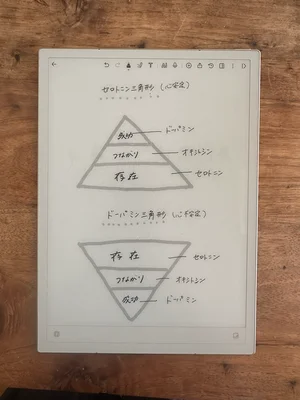 セロトニン三角形(心安定)
成功 ドーパミン
つながり オキシトシン
存在 セロトニン
ドーパミン三角形(心不安定)
存在 セロトニン
つながり オキシトシン
成功 ドーパミン